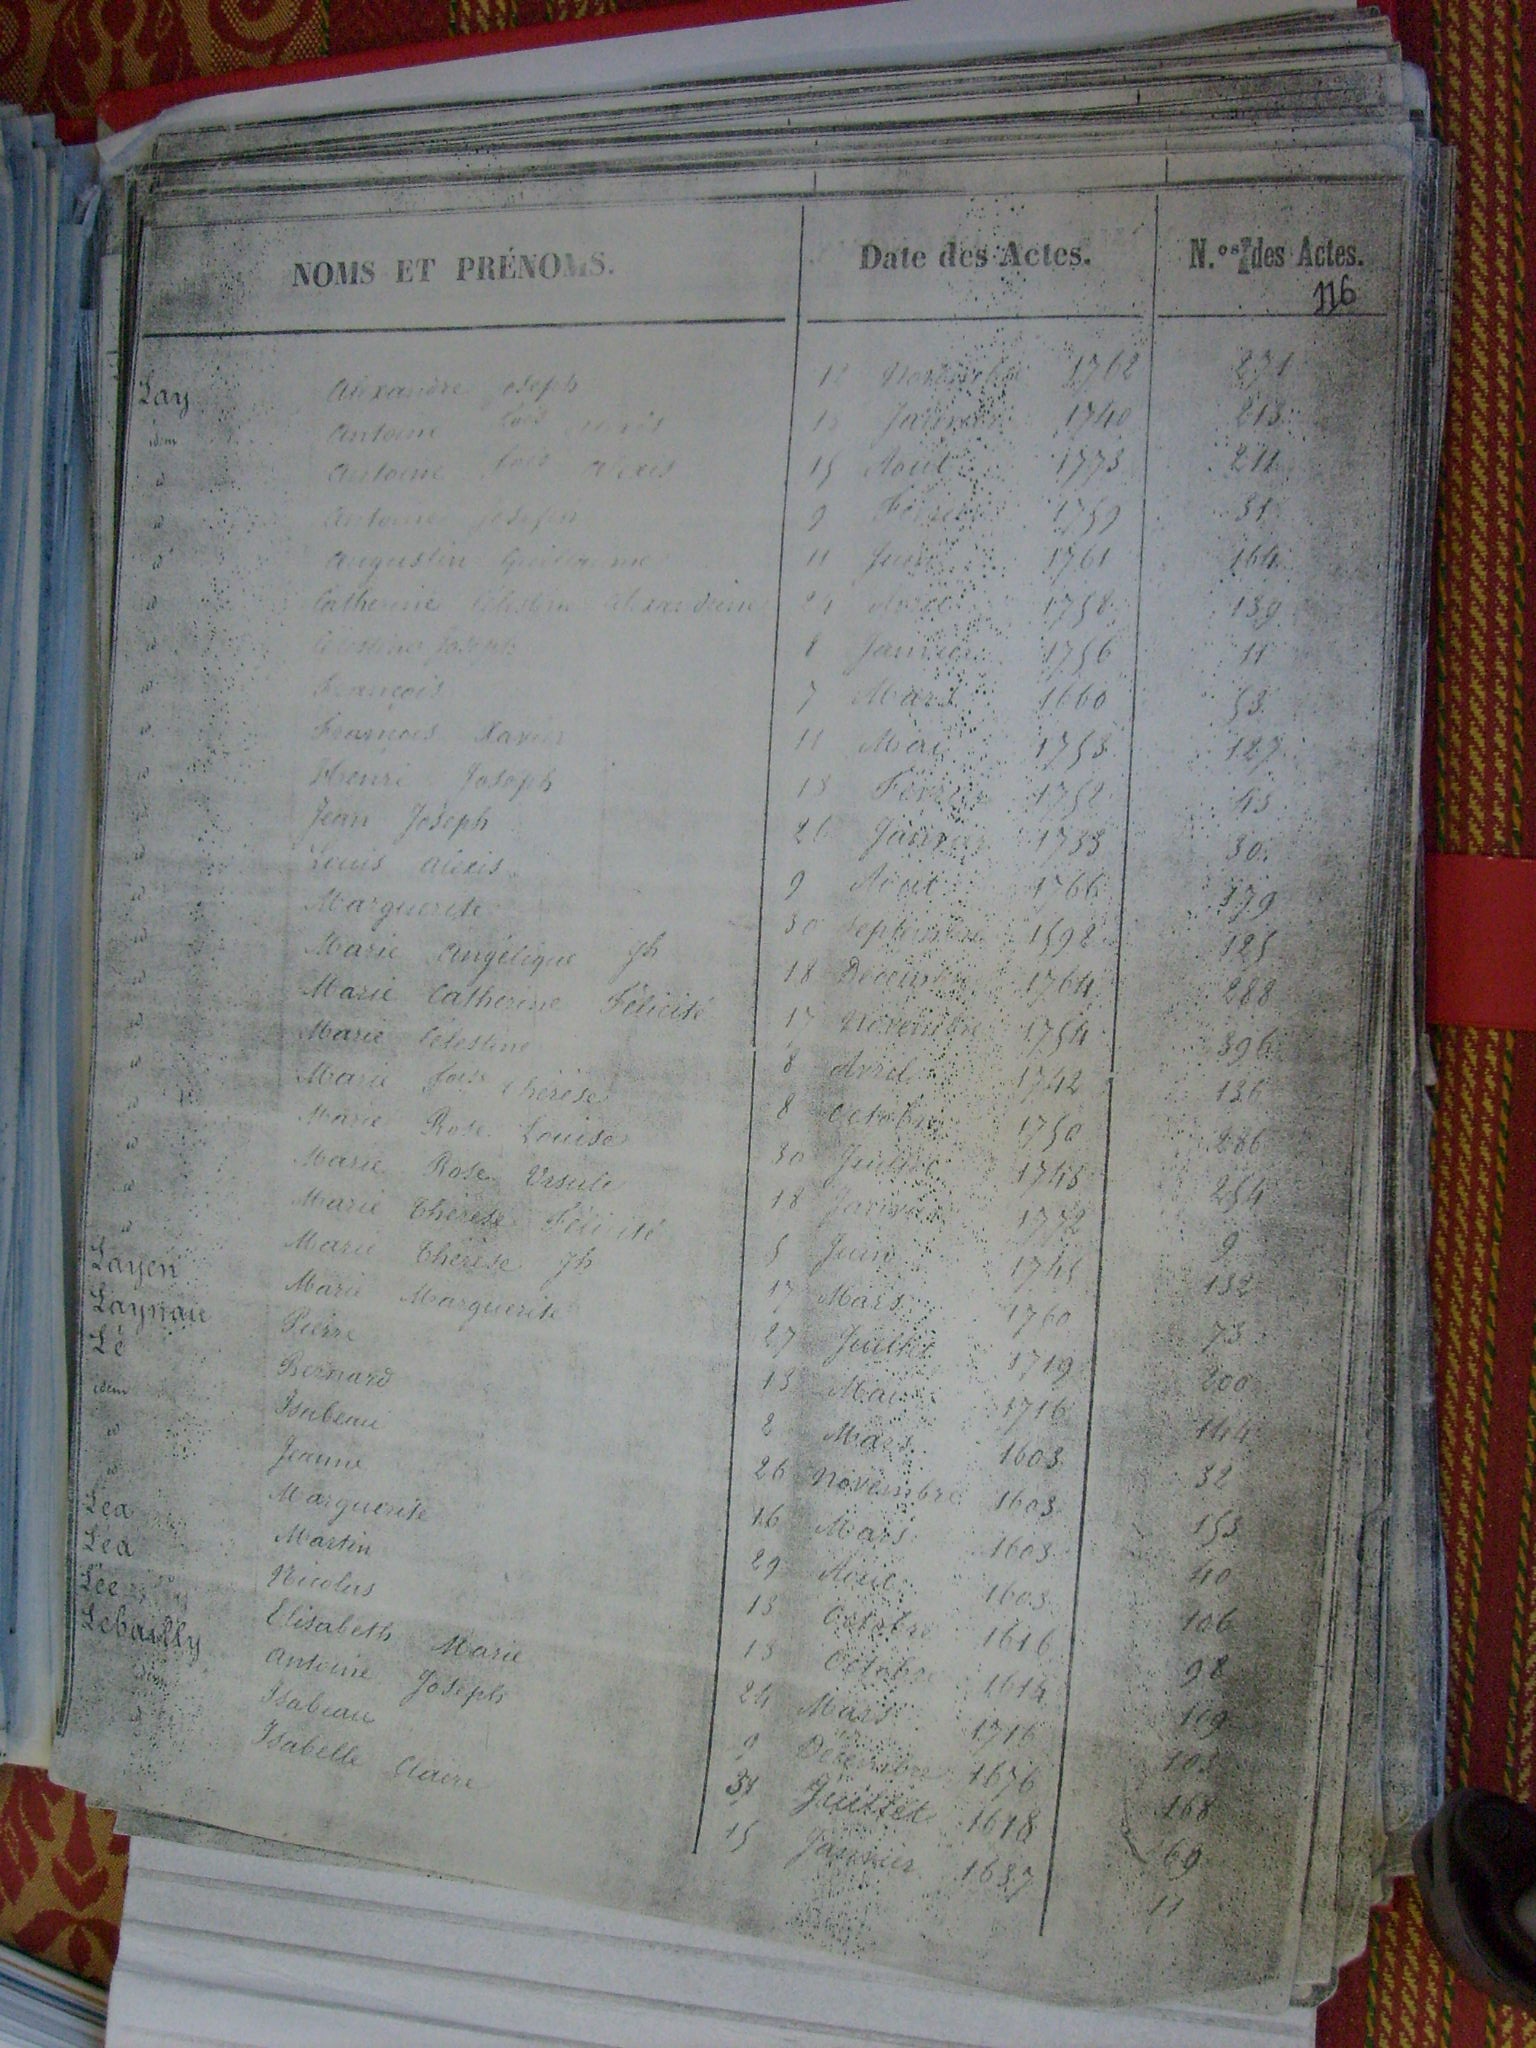 NOMS ET PRÉNOMS. Date des Actes. N.os des Actes.
116
Lay Alexandre Joseph 12 Novembre 1762 271
idem Antoine fois 18 Janvier 1740 213
id Antoine fois alexis 15 Aout 1773 211
id Antoine Joseph 9 Février 1759 31
id Augustin Guillaume 11 Juin 1761 164
id Catherine Célestin Alexandrine 24 Avril 1758 139
id Célestine Joseph 8 Janvier 1756 11
id François 7 Mars 1660 53
id François Xavier 11 Mai 1753 127
id Henri Joseph 13 Février 1752 43
id Jean Joseph 26 Janvier 1733 30
id Louis Alexis 9 Aout 1766 179
id Marguerite 30 Septembre 1592 125
id Marie Angélique Jh 18 Décembre 1764 288
id Marie Catherine Félicité 17 Novembre 1754 396
id Marie Célestine 8 Avril 1742 136
id Marie foise thérèse 8 Octobre 1750 286
id Marie Rose Louise 30 Juillet 1748 254
id Marie Rose Ursule 18 Janvier 1772 9
id Marie thérèse Félicité 5 Juin 1745 132
id Marie thérèse Jh 17 Mars 1760 73
Layen Marie Marguerite 27 Juillet 1719 200
Laynau Pierre 13 Mai 1716 144
Lé Bernard 2 Mars 1603 32
idem Isabeau 26 Novembre 1603 153
id Jeanne 16 Mars 1603 40
id Marguerite 29 Aout 1603 106
Léa Martin 13 Octobre 1616 98
Léa Nicolas 13 Octobre 1614 109
Lée Elisabeth Marie 24 Mars 1716 103
Lebailly Antoine Joseph 9 Décembre 1676 168
idem Isabeau 31 Juillet 1618 69
id Isabelle Claire 15 Janvier 1637 11